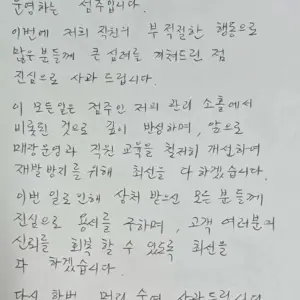 운영하는 점주입니다.
이번에 저희 직원의 부적절한 행동으로
많은 분들께 큰 심려를 끼쳐드린 점
진심으로 사과 드립니다.
이 모든일은 점주인 저의 관리 소홀에서
비롯된 것으로 깊이 반성하며, 앞으로
매장운영과 직원 교육을 철저히 개선하여
재발 방지를 위해 최선을 다 하겠습니다.
이번 일로 인해 상처 받으신 모든 분들께
진심으로 용서를 구하며, 고객 여러분의
신뢰를 회복 할 수 있도록 최선을
다 하겠습니다.
다시 한번 머리 숙여 사과드립니다